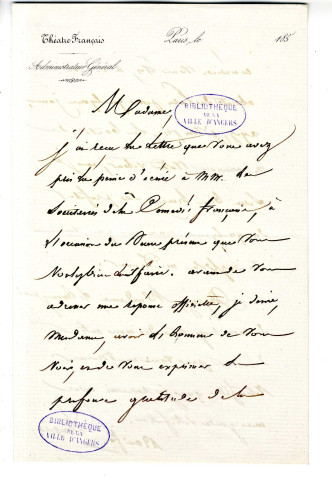 Théâtre Français Paris le 185
Administrateur Général
Madame
BIBLIOTHÈQUE
DE LA
VILLE D'ANGERS
J'ai reçu la lettre que vous avez
pris la peine d'écrire à MM. les
Sociétaires de la Comédie française, à
l'occasion du présent que vous
avant de vous
adresser une réponse officielle, je désire,
Madame, avoir l'honneur de vous
voir, et de vous exprimer la
profonde gratitude de la
BIBLIOTHÈQUE
DE LA
VILLE D'ANGERS